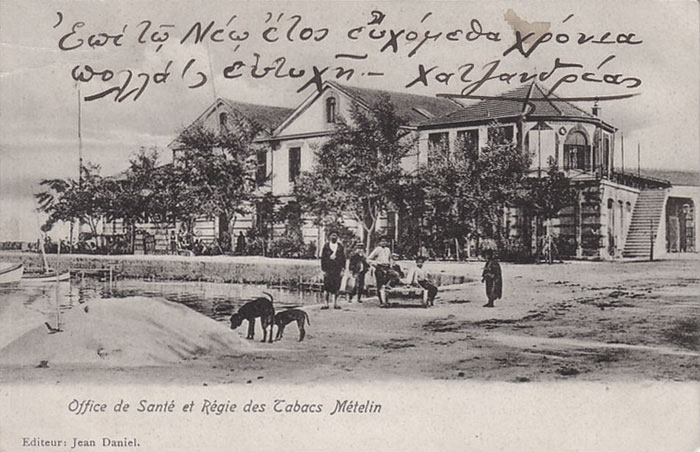 Ἐπὶ τῷ Νέῳ ἔτος εὐχόμεθα χρόνια
πολλά κ' εὐτυχῆ – Χατζανδρέας
Office de Santé et Régie des Tabacs Mételin
Editeur: Jean Daniel.